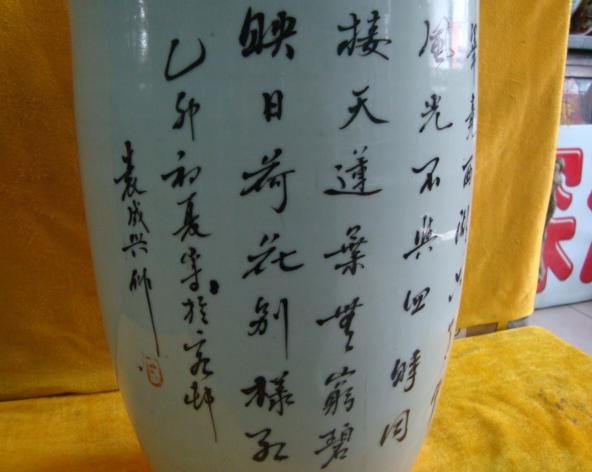 畢竟西湖六月中
風光不與四時同
接天蓮葉無窮碧
映日荷花别樣紅
乙卯初夏寫於客邨
成興作